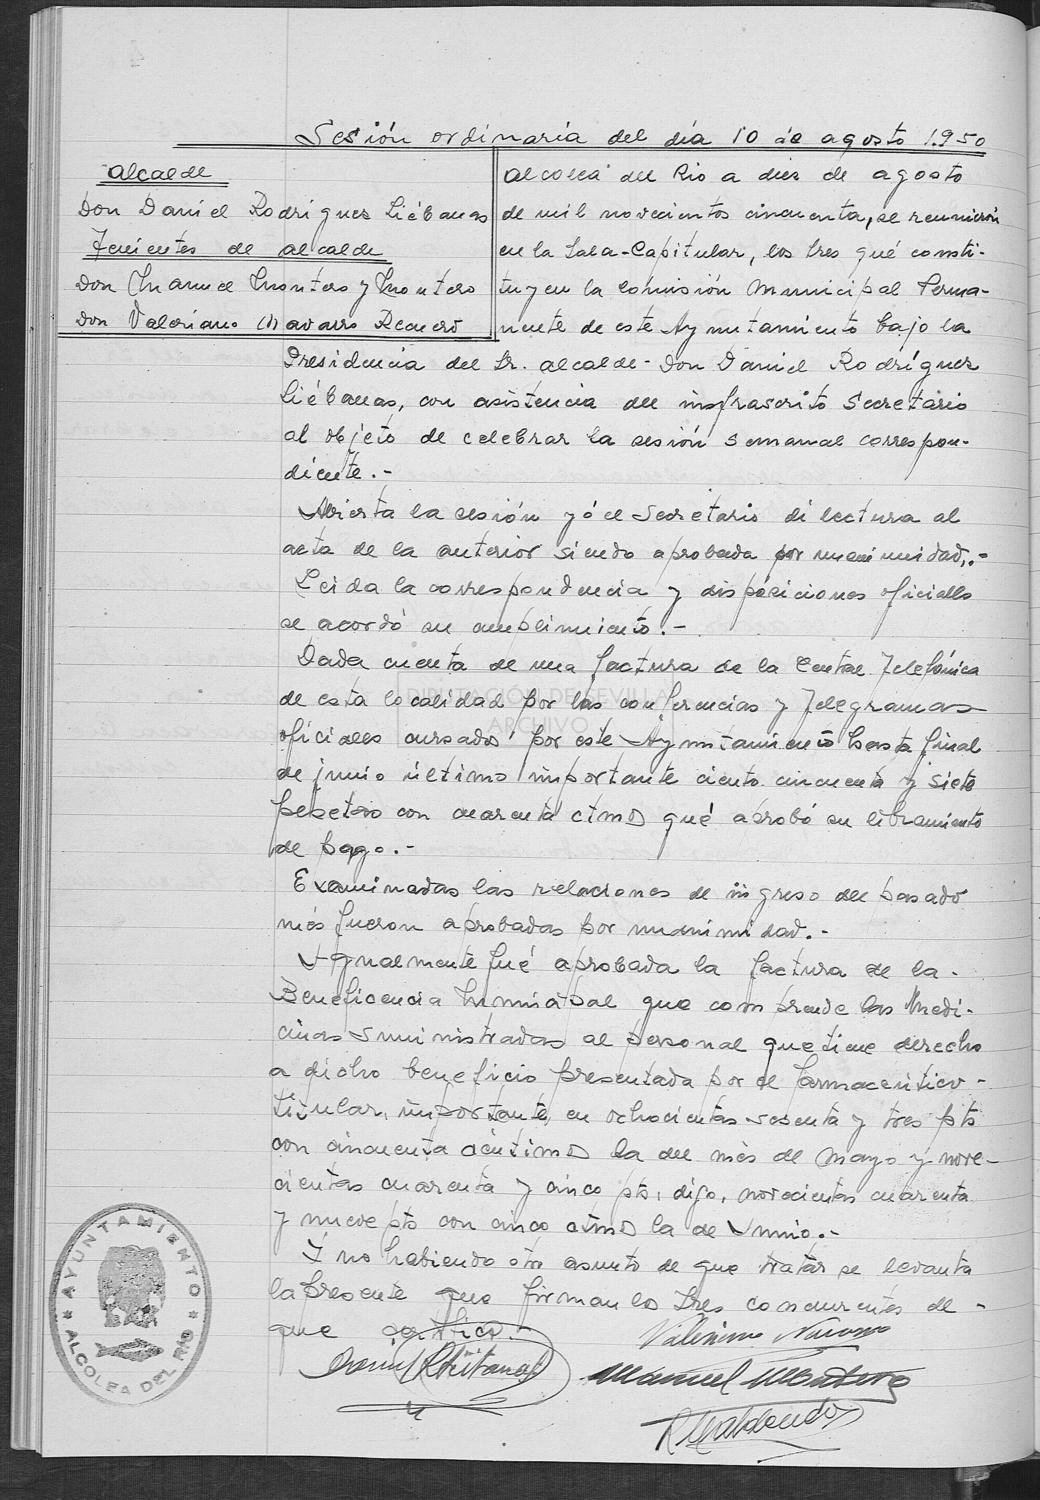 Sesión ordinaria del día 10 de agosto 1.950
Alcalde
Don Daniel Rodríguez Liébanas
Tenientes de alcalde
Don Manuel Montero y Montero
Don Valeriano Navarro Recuero
Alcolea del Rio a diez de agosto
de mil novecientos cincuenta, se reunieron
en la Sala-Capitular, los tres qué consti-
tuyen la Comisión Municipal Perma-
nente de este Ayuntamiento bajo la
Presidencia del Sr. alcalde- Don Daniel Rodríguez
Liébanas, con asistencia del infrascrito Secretario
al objeto de celebrar la sesión semanal correspon-
diente.-
Abierta la sesión yó el Secretario di lectura al
acta de la anterior siendo aprobada por unanimidad,.-
Leida la correspondencia y disposiciones oficiales
se acordó su cumplimiento.-
Dada cuenta de una factura de la Central Telefónica
de esta localidad por las conferencias y Telegramas
oficiales cursados por este Ayuntamiento hasta final
de junio último importante ciento cincuenta y siete
pesetas con cuarenta ctmos qué aprobó su libramiento
de pago.-
Examinadas las relaciones de ingreso del pasado
més fueron aprobadas por unanimidad.-
Igualmente fué aprobada la factura de la
Beneficencia Municipal que comprende las Medi-
cinas suministradas al personal que tiene derecho
a dicho beneficio presentada por el farmaceútico-
titular, importante, en ochocientas sesenta y tres pts
con cincuenta céntimos la del més de Mayo y nove-
cientas cuarenta y cinco pts, digo, novecientas cuarenta
y nueve pts con cinco ctmos la de Junio.-
Y no habiendo otro asunto de que tratar se levanta
la presente que firman los tres concurrentes de-
que certifico.-
Valeriano Navarro
Manuel Montero
DIPUTACIÓN DE SEVILLA
ARCHIVO
AYUNTAMIENTO
ALCOLEA DEL RIO